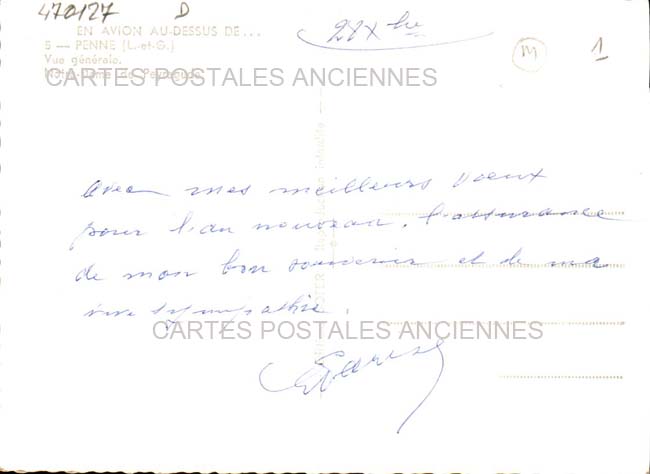 470127 D
EN AVION AU-DESSUS DE...
5 — PENNE (L.-et-G.)
Vue générale.
Notre-Dame de Peyragude
M
1
CARTES POSTALES ANCIENNES
avec mes meilleurs voeux
pour l'an nouveau. l'assurance
de mon bon souvenir et de ma
vive sympathie.
CARTES POSTALES ANCIENNES